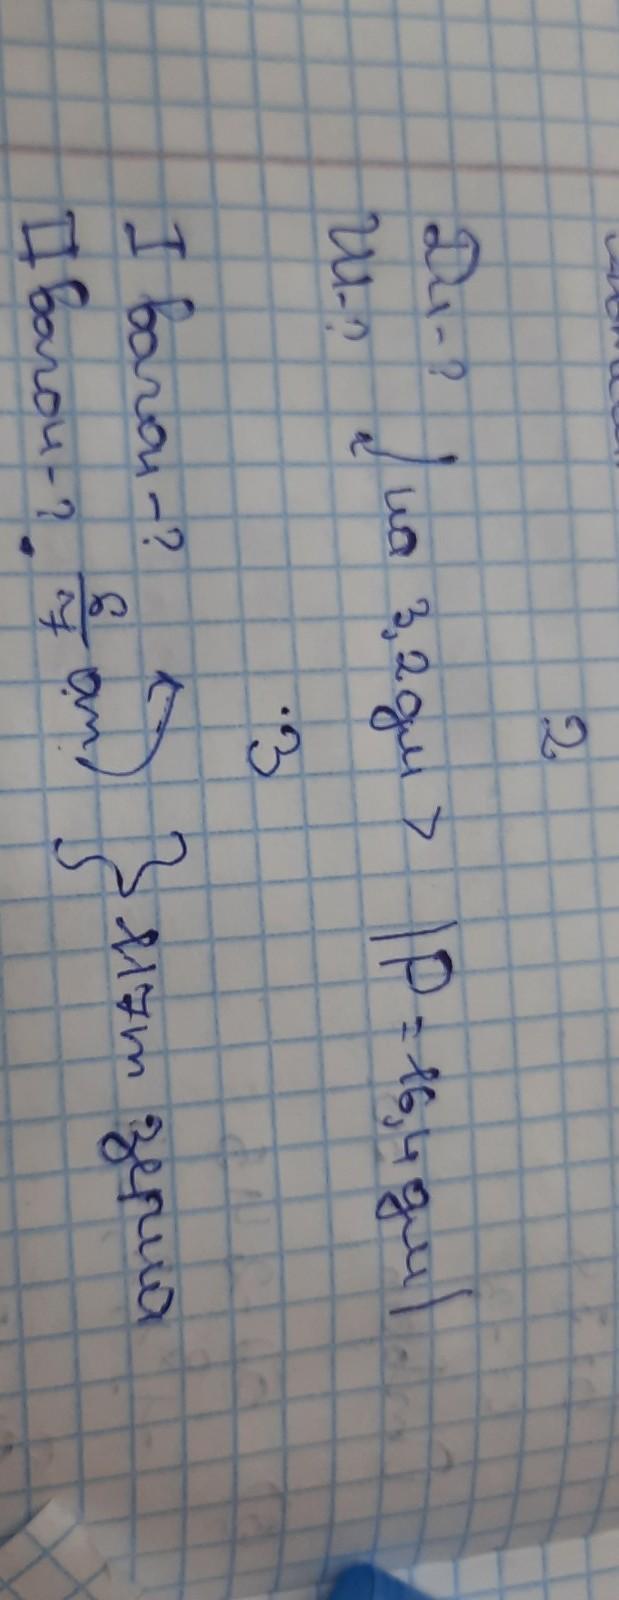 2
Дл-? на 3,2дм > |P = 16,4 дм|
Ш-?
3
I вагон-?
II вагон-? 6/7 от } 117т зерна